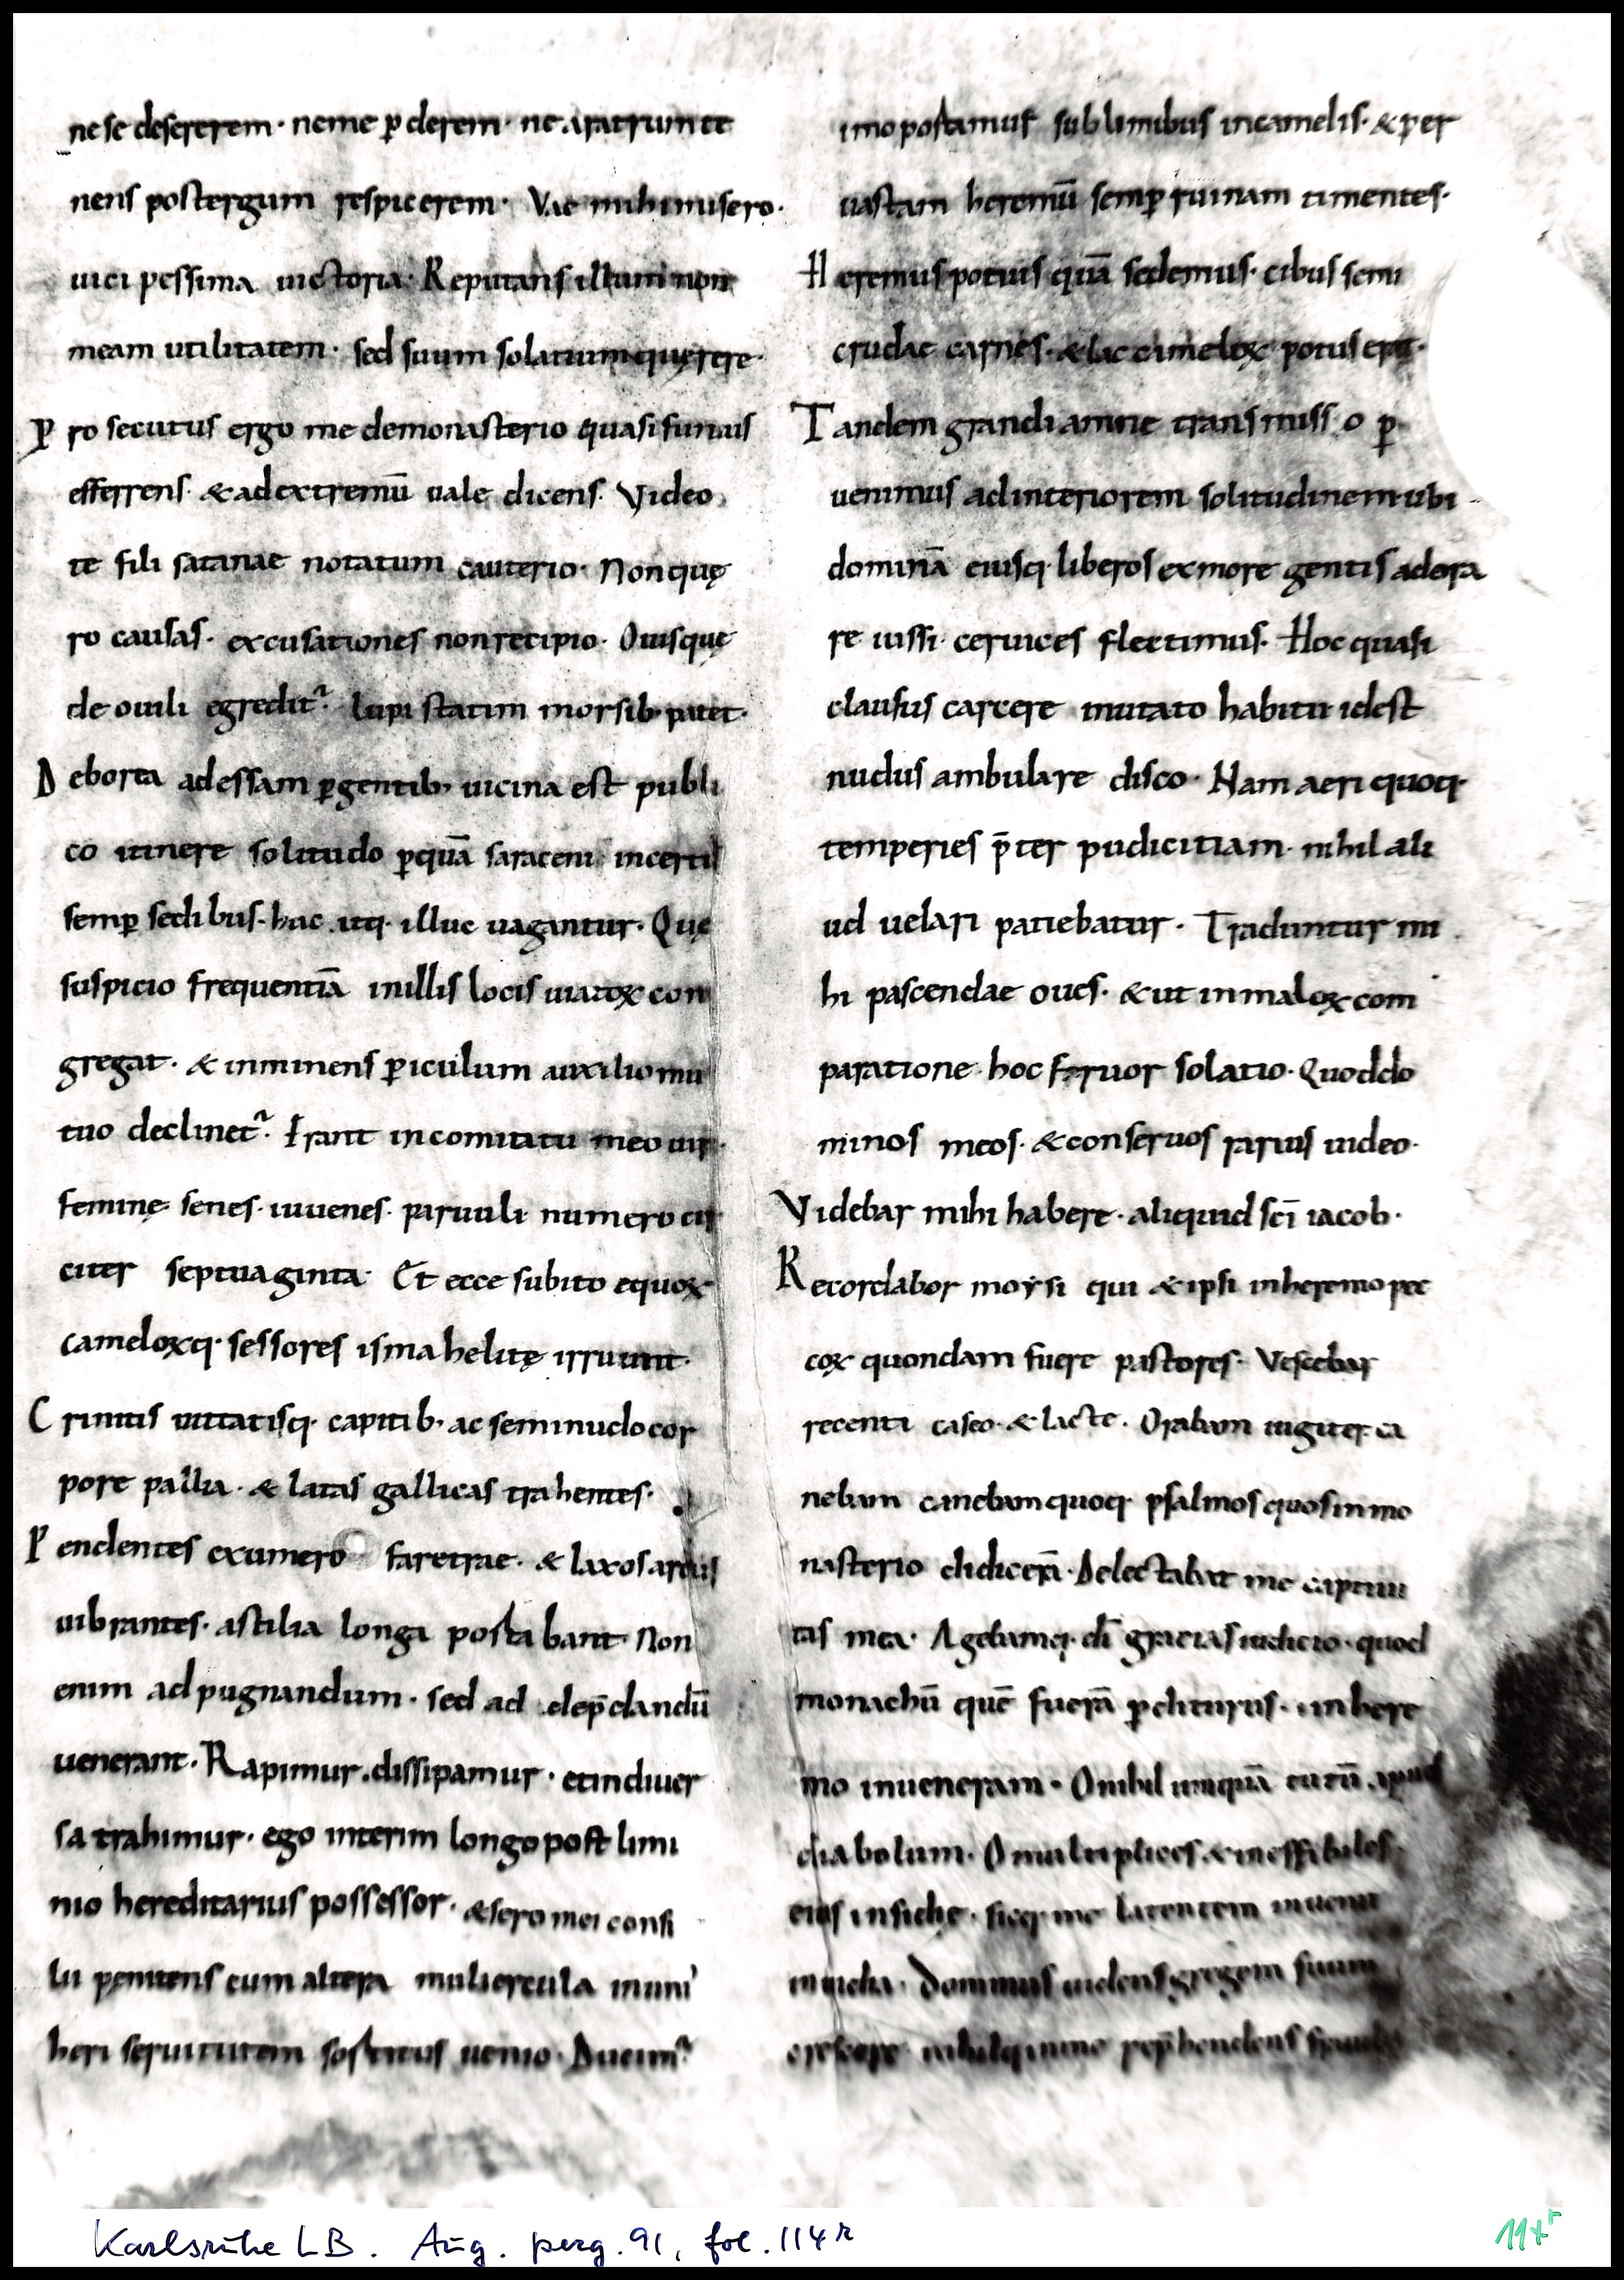 ne se desererem · ne me ꝑderem · ne aratrum te
nens postergum respicerem · Vae mihi misero ·
uici pessima uictoria · Reputans illum non
meam utilitatem · sed suum solatium quęrere ·
Prosecutus ergo me de monasterio quasi funus
efferens · & ad extremū uale dicens · Video
te fili satanae notatum cauterio · Non quę
ro causas · excusationes non recipio · Ouis quę
de ouili egredit᷑ · lupi statim morsib· patet ·
De boroea ad essam ꝑgentib· uicina est publi
co itinere solitudo ꝑ quā saraceni incertis
semꝑ sedibus · hac itq· illuc uagantur · Quę
suspicio frequentiā in illis locis uiatoꝝ con
gregat · & inminens ꝑiculum auxilio mu
tuo declinet᷑ · Erant in comitatu meo uiri
feminę · senes · iuuenes · paruuli numero cir
citer septuaginta · Et ecce subito equoꝝ
cameloꝝq· sessores ismahelitę irruunt ·
Crinitis uittatisq· capitib· ac seminudo cor
pore pallia · & latas gallicas trahentes ·
Pendentes ex umero faretrae · & laxos arcus
uibrantes · astilia longa postabant · Non
enim ad pugnandum · sed ad dep̄dandū
uenerant · Rapimur · dissipamur · et in diuer
sa trahimur · ego interim longo post limi
nio hereditarius possessor · & sero mei consi
lii pęnitens cum altera muliercula in uni'
heri seruitutem sostitus uenio · Ducim᷑
imo postamur sublimibus in camelis · & per
uastam heremū semꝑ ruinam timentes ·
Heremus potuis quā sedemus · cibus semi
crudae carnes · & lac cameloꝝ potus erat ·
Tandem grandi amne transmisso ꝑ
uenimus ad interiorem solitudinem ubi
dominā eiusq· liberos ex more gentis adora
re iussi · ceruices flectimus · Hoc quasi
clausus carcere mutato habitu idest
nudus ambulare disco · Nam aeri quoq·
temperies p̄ter pudicitiam · nihil ali
ud uelari patiebatur · Traduntur mi
hi pascendae oues · & ut in maloꝝ com
paratione · hoc feruor solatio · Quod do
minos meos · & conseruos rarius uideo ·
Videbar mihi habere · aliquid scī iacob ·
Recordabor moysi qui & ipsi in heremo pec
coꝝ quondam fuere pastores · Vescebar
recenti caseo · & lacte · Orabam iugiter ca
nebam canebam quoq· psalmos quos in mo
nasterio didicerā · Delectabat me captiui
tas mea · Agebamq· dī gracias iudicio · quod
monachū quē fuerā ꝑditurus · in here
mo inueneram · O nihil umquā tutū apud
diabolum · O multiplices & ineffabiles
eius insidię · sicq· me latentem inuenit
inuidia · Dominus uidens gregem suum
crescere nihilq· in me rep̄hendens
Karlsruhe LB. Aug. perg. 91, fol. 114r
114r